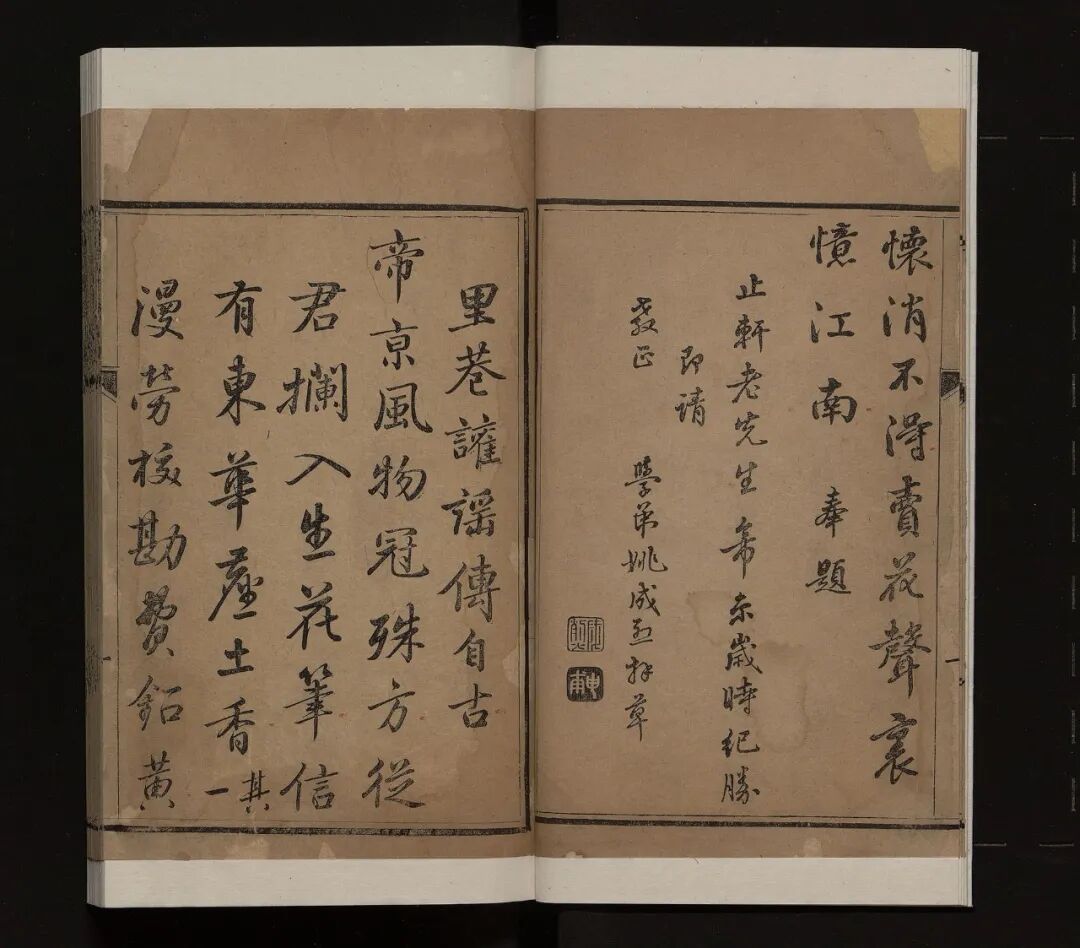 懷消不得賣花聲裏
憶江南奉題
止軒老先生帝京歲時紀勝
即請
教正
學弟姚成烈拜草
里巷讙謠傳自古
帝京風物冠殊方從
君攔入生花筆信
有東華塵土香其一
漫勞校勘費鉛黃